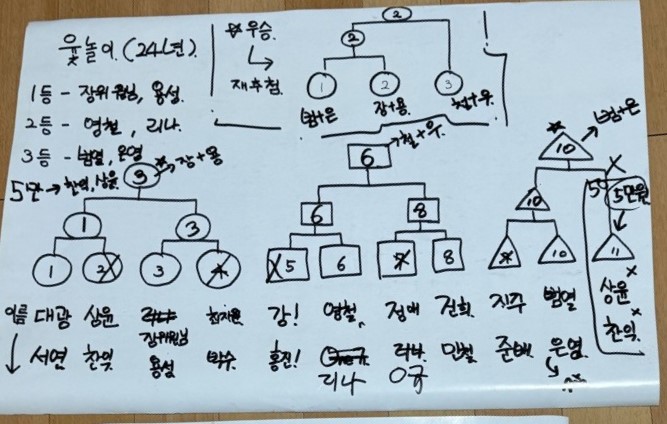 윷놀이. (24년).
1등 - 장위권님, 용성.
2등 - 영철, 리나.
3등 - 범열, 은영
5만 → 찬익, 상윤
우승.
재추첨.
2
2
1 2 3
범+은 장+용 철+우
3 장+용
1 3
1 2 3 4
6 철+우.
6 8
5 6 7 8
10 범+은
10
9 10
5만원
11
상윤
찬익.
이름 대광 상윤 강! 영철, 정애 진희. 지주 범열
서연 찬익 장위권님 용성 박수 홍진! 리나 민철 준배 은영.